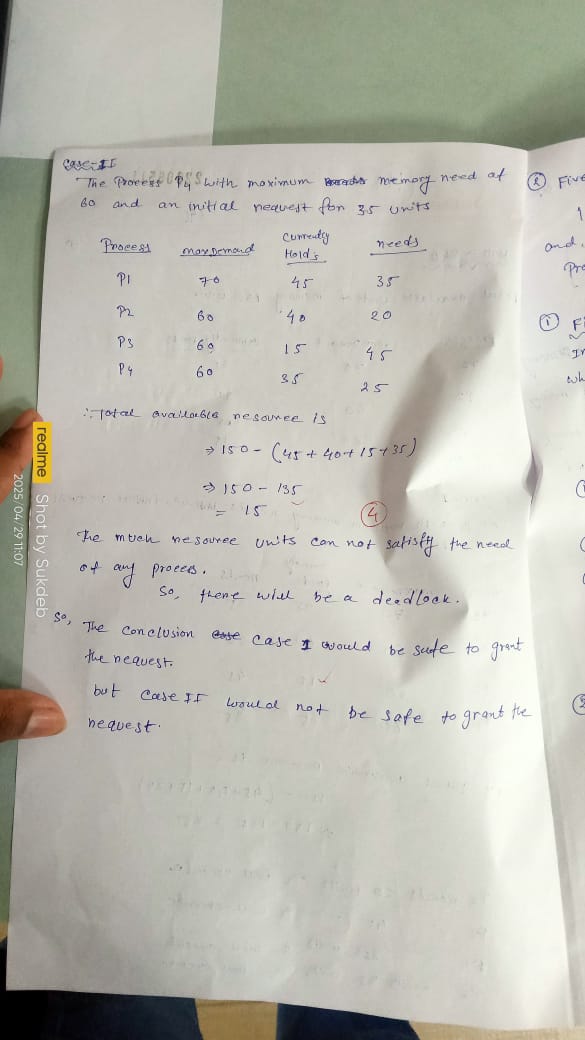 Case-II
The Process P4 with maximum memory need of
60 and an initial request for 35 units
Process max Demand Currently Holds needs
P1 70 45 35
P2 60 40 20
P3 60 15 45
P4 60 35 25
∴ Total available resource is
⇒ 150 - (45 + 40 + 15 + 35)
⇒ 150 - 135
= 15
4
The much resource units can not satisfy the need
of any process.
So, there will be a deadlock.
So, The conclusion case I would be safe to grant
the request.
but case II would not be safe to grant the
request.
② Five
1
and
Pro
① Fi
In
wh
realme Shot by Sukdeb
2025/04/29 11:07